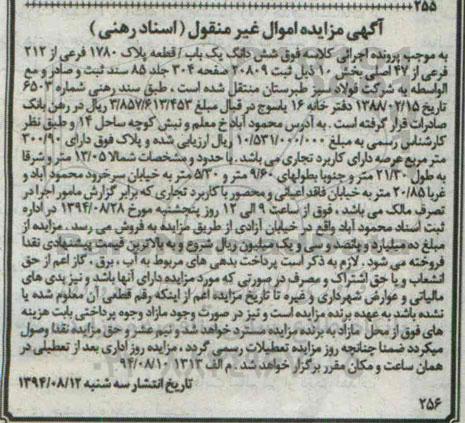 ۲۵۵
آگهی مزایده اموال غیر منقول ( اسناد رهنی )
به موجب پرونده اجرائی کلاسه فوق شش دانگ یک باب / قطعه پلاک ۱۷۸۰ فرعی از ۲۱۲
فرعی از ۴۷ اصلی بخش ۱۰ ذیل ثبت ۲۰۸۰۹ صفحه ۳۰۴ جلد ۸۵ سند ثبت و صادر و مع
الواسطه به شرکت فولاد سبز طبرستان منتقل شده است ، طبق سند رهنی شماره ۶۵۰۳
تاریخ ۱۳۸۸/۰۲/۱۵ دفتر خانه ۱۶ یاسوج در قبال مبلغ ۳/۸۵۷/۶۱۳/۴۵۳ ریال در رهن بانک
صادرات قرار گرفته است . به آدرس محمود آباد خ معلم و نبش کوچه ساحل ۱۴ و طبق نظر
کارشناس رسمی به مبلغ ۱۰/۵۳۱/۰۰۰/۰۰۰ ریال ارزیابی شده و پلاک فوق دارای ۳۰۰/۹۰
متر مربع عرصه دارای کاربرد تجاری می باشد . با حدود و مشخصات شمالا ۱۳/۰۵ متر و شرقا
به طول ۲۱/۳۰ متر و جنوبا بطولهای ۹/۶۰ متر و ۵/۳۰ متر به خیابان سرخرود محمود آباد و
غربا ۲۰/۸۵ متر به خیابان فاقد اعیانی و محصور با کاربرد تجاری که برابر گزارش مامور اجرا در
تصرف مالک می باشد ، فوق از ساعت ۹ الی ۱۲ روز پنجشنبه مورخ ۱۳۹۴/۰۸/۲۸ در اداره
ثبت اسناد محمود آباد واقع در خیابان آزادی از طریق مزایده به فروش می رسد . مزایده از
مبلغ ده میلیارد و پانصد و سی و یک میلیون ریال شروع و به بالاترین قیمت پیشنهادی نقدا
فروخته می شود . لازم به ذکر است پرداخت بدهی های مربوط به آب ، برق ، گاز اعم از حق
انشعاب و یا حق اشتراک و مصرف در صورتی که مورد مزایده دارای آنها باشد و نیز بدی های
مالیاتی و عوارض شهرداری و غیره تا تاریخ مزایده اعم از اینکه رقم قطعی آن معلوم شده یا
نشده باشد به عهده برنده مزایده است و نیز در صورت وجود مازاد وجوه پرداختی بابت هزینه
های فوق از محل مازاد به برنده مزایده مسترد خواهد شد و نیم عشر و حق مزایده نقدا وصول
میکردد ضمنا چنانچه روز مزایده تعطیلات رسمی گردد ، مزایده روز اداری بعد از تعطیلی در
همان ساعت و مکان مقرر برگزار خواهد شد . م الف ۱۳۱۳ ۹۴/۰۸/۱۰
تاریخ انتشار سه شنبه ۱۳۹۴/۰۸/۱۲
۲۵۶